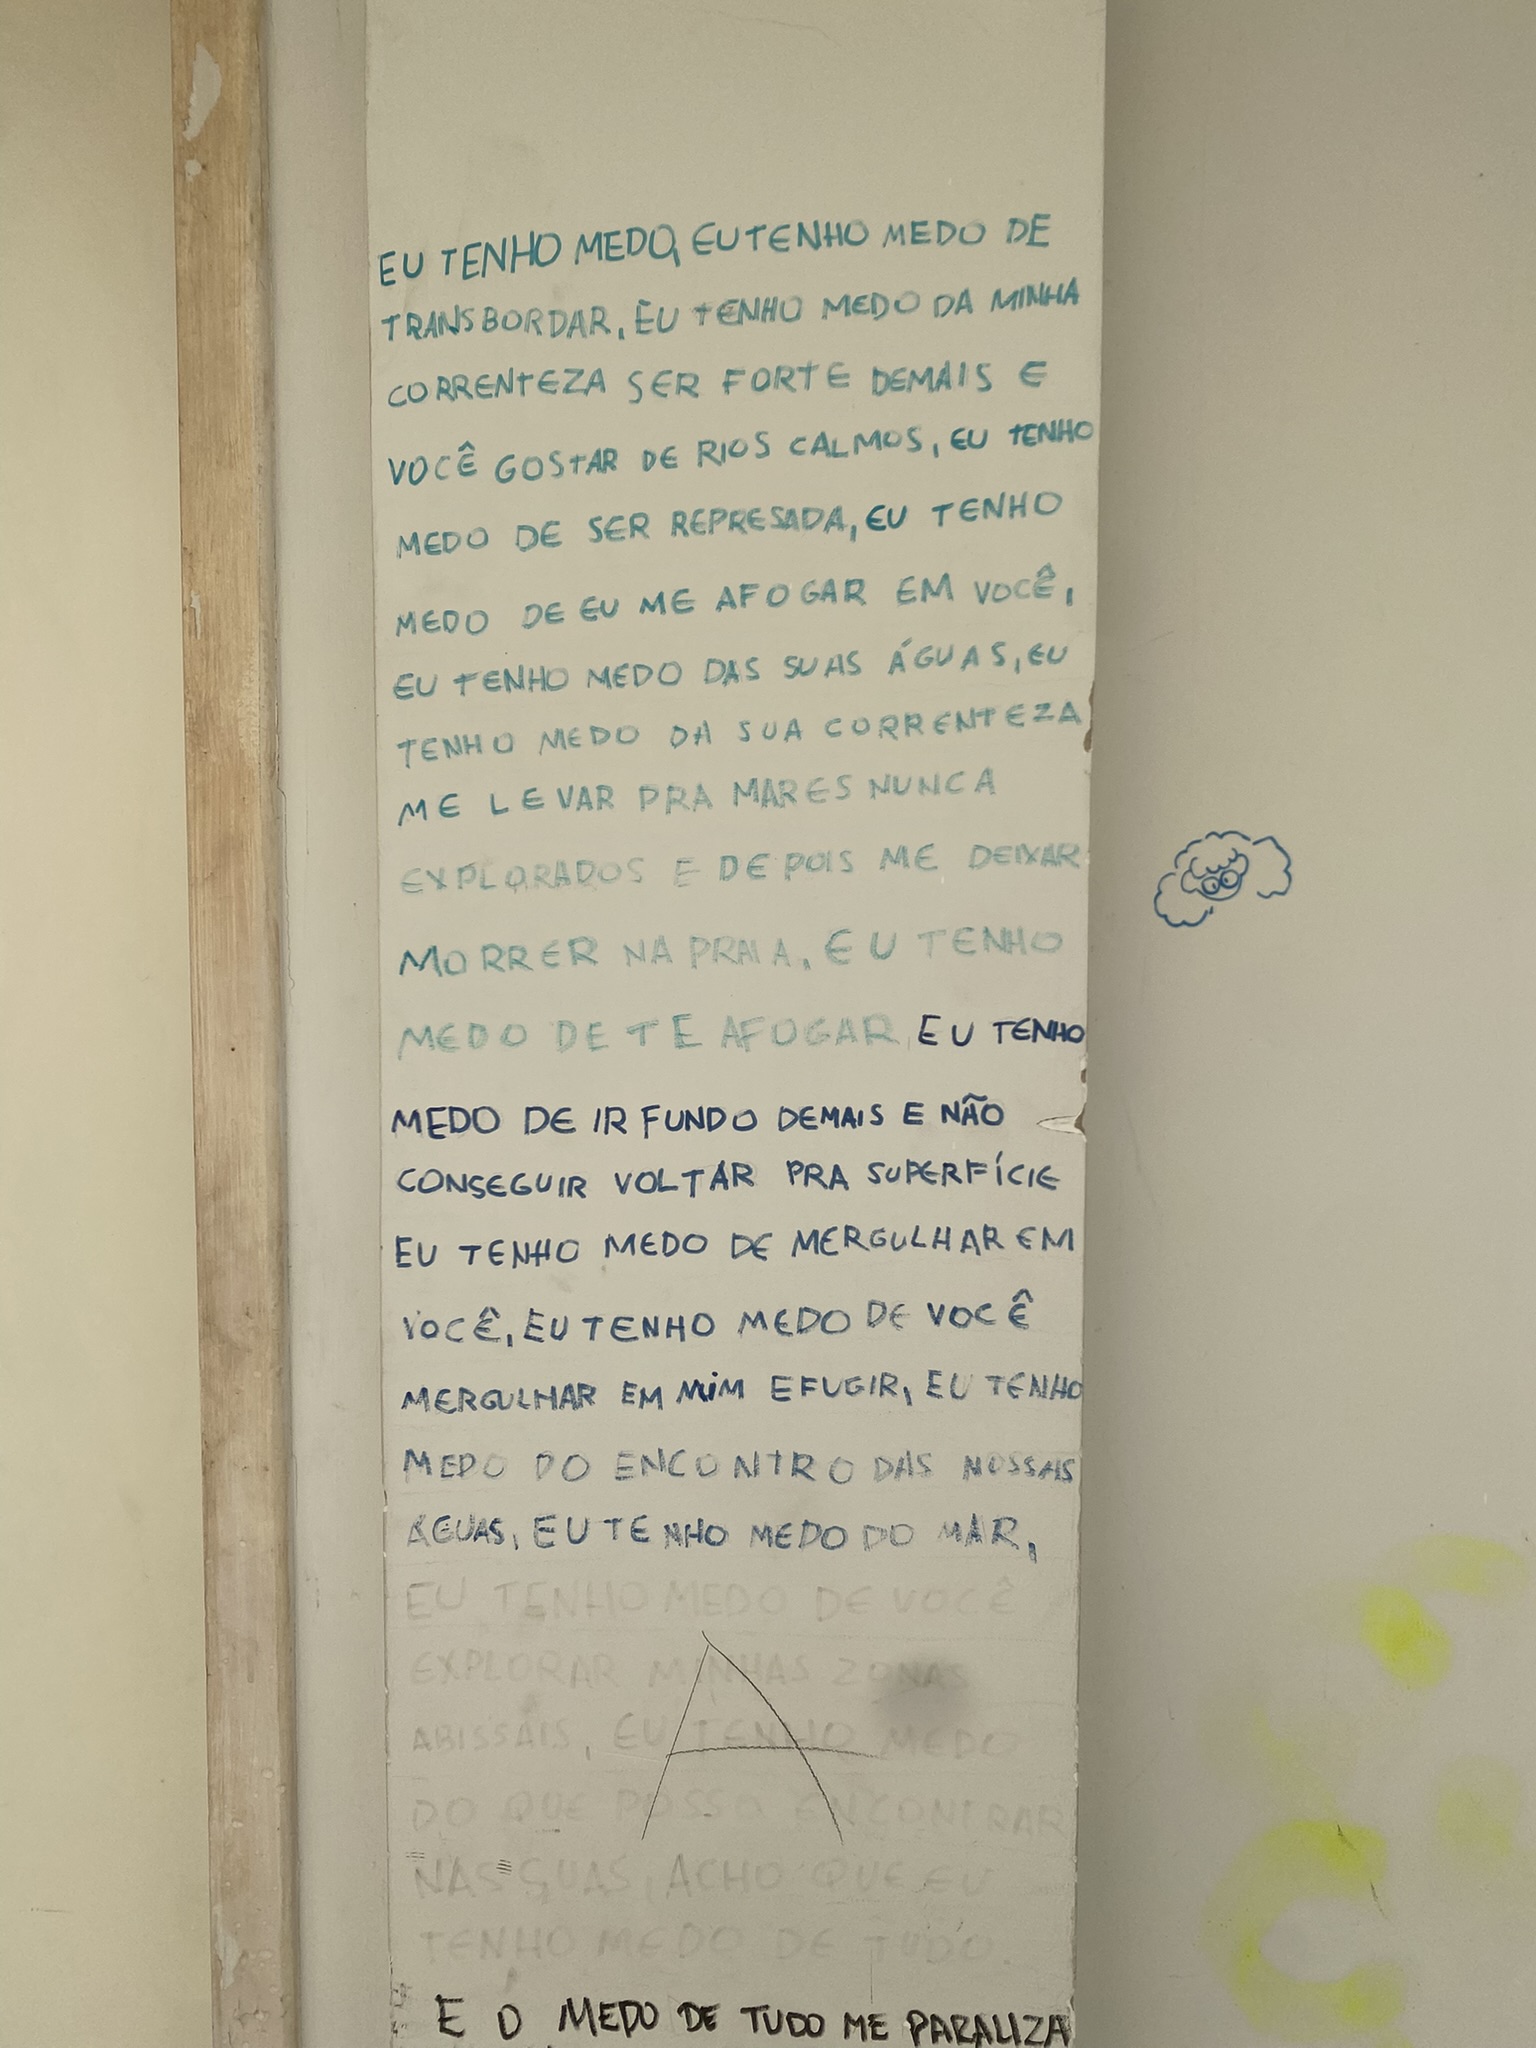 EU TENHO MEDO, EU TENHO MEDO DE
TRANSBORDAR, EU TENHO MEDO DA MINHA
CORRENTEZA SER FORTE DEMAIS E
VOCÊ GOSTAR DE RIOS CALMOS, EU TENHO
MEDO DE SER REPRESADA, EU TENHO
MEDO DE EU ME AFOGAR EM VOCÊ,
EU TENHO MEDO DAS SUAS ÁGUAS, EU
TENHO MEDO DA SUA CORRENTEZA
ME LEVAR PRA MARES NUNCA
EXPLORADOS E DEPOIS ME DEIXAR
MORRER NA PRAIA, EU TENHO
MEDO DE TE AFOGAR EU TENHO
MEDO DE IR FUNDO DEMAIS E NÃO
CONSEGUIR VOLTAR PRA SUPERFÍCIE
EU TENHO MEDO DE MERGULHAR EM
VOCÊ, EU TENHO MEDO DE VOCÊ
MERGULHAR EM MIM E FUGIR, EU TENHO
MEDO DO ENCONTRO DAS NOSSAS
ÁGUAS, EU TENHO MEDO DO MAR,
EU TENHO MEDO DE VOCÊ
EXPLORAR MINHAS ZONAS
ABISSAIS, EU TENHO MEDO
DO QUE POSSO ENCONTRAR
NAS SUAS, ACHO QUE EU
TENHO MEDO DE TUDO.
E O MEDO DE TUDO ME PARALIZA
A